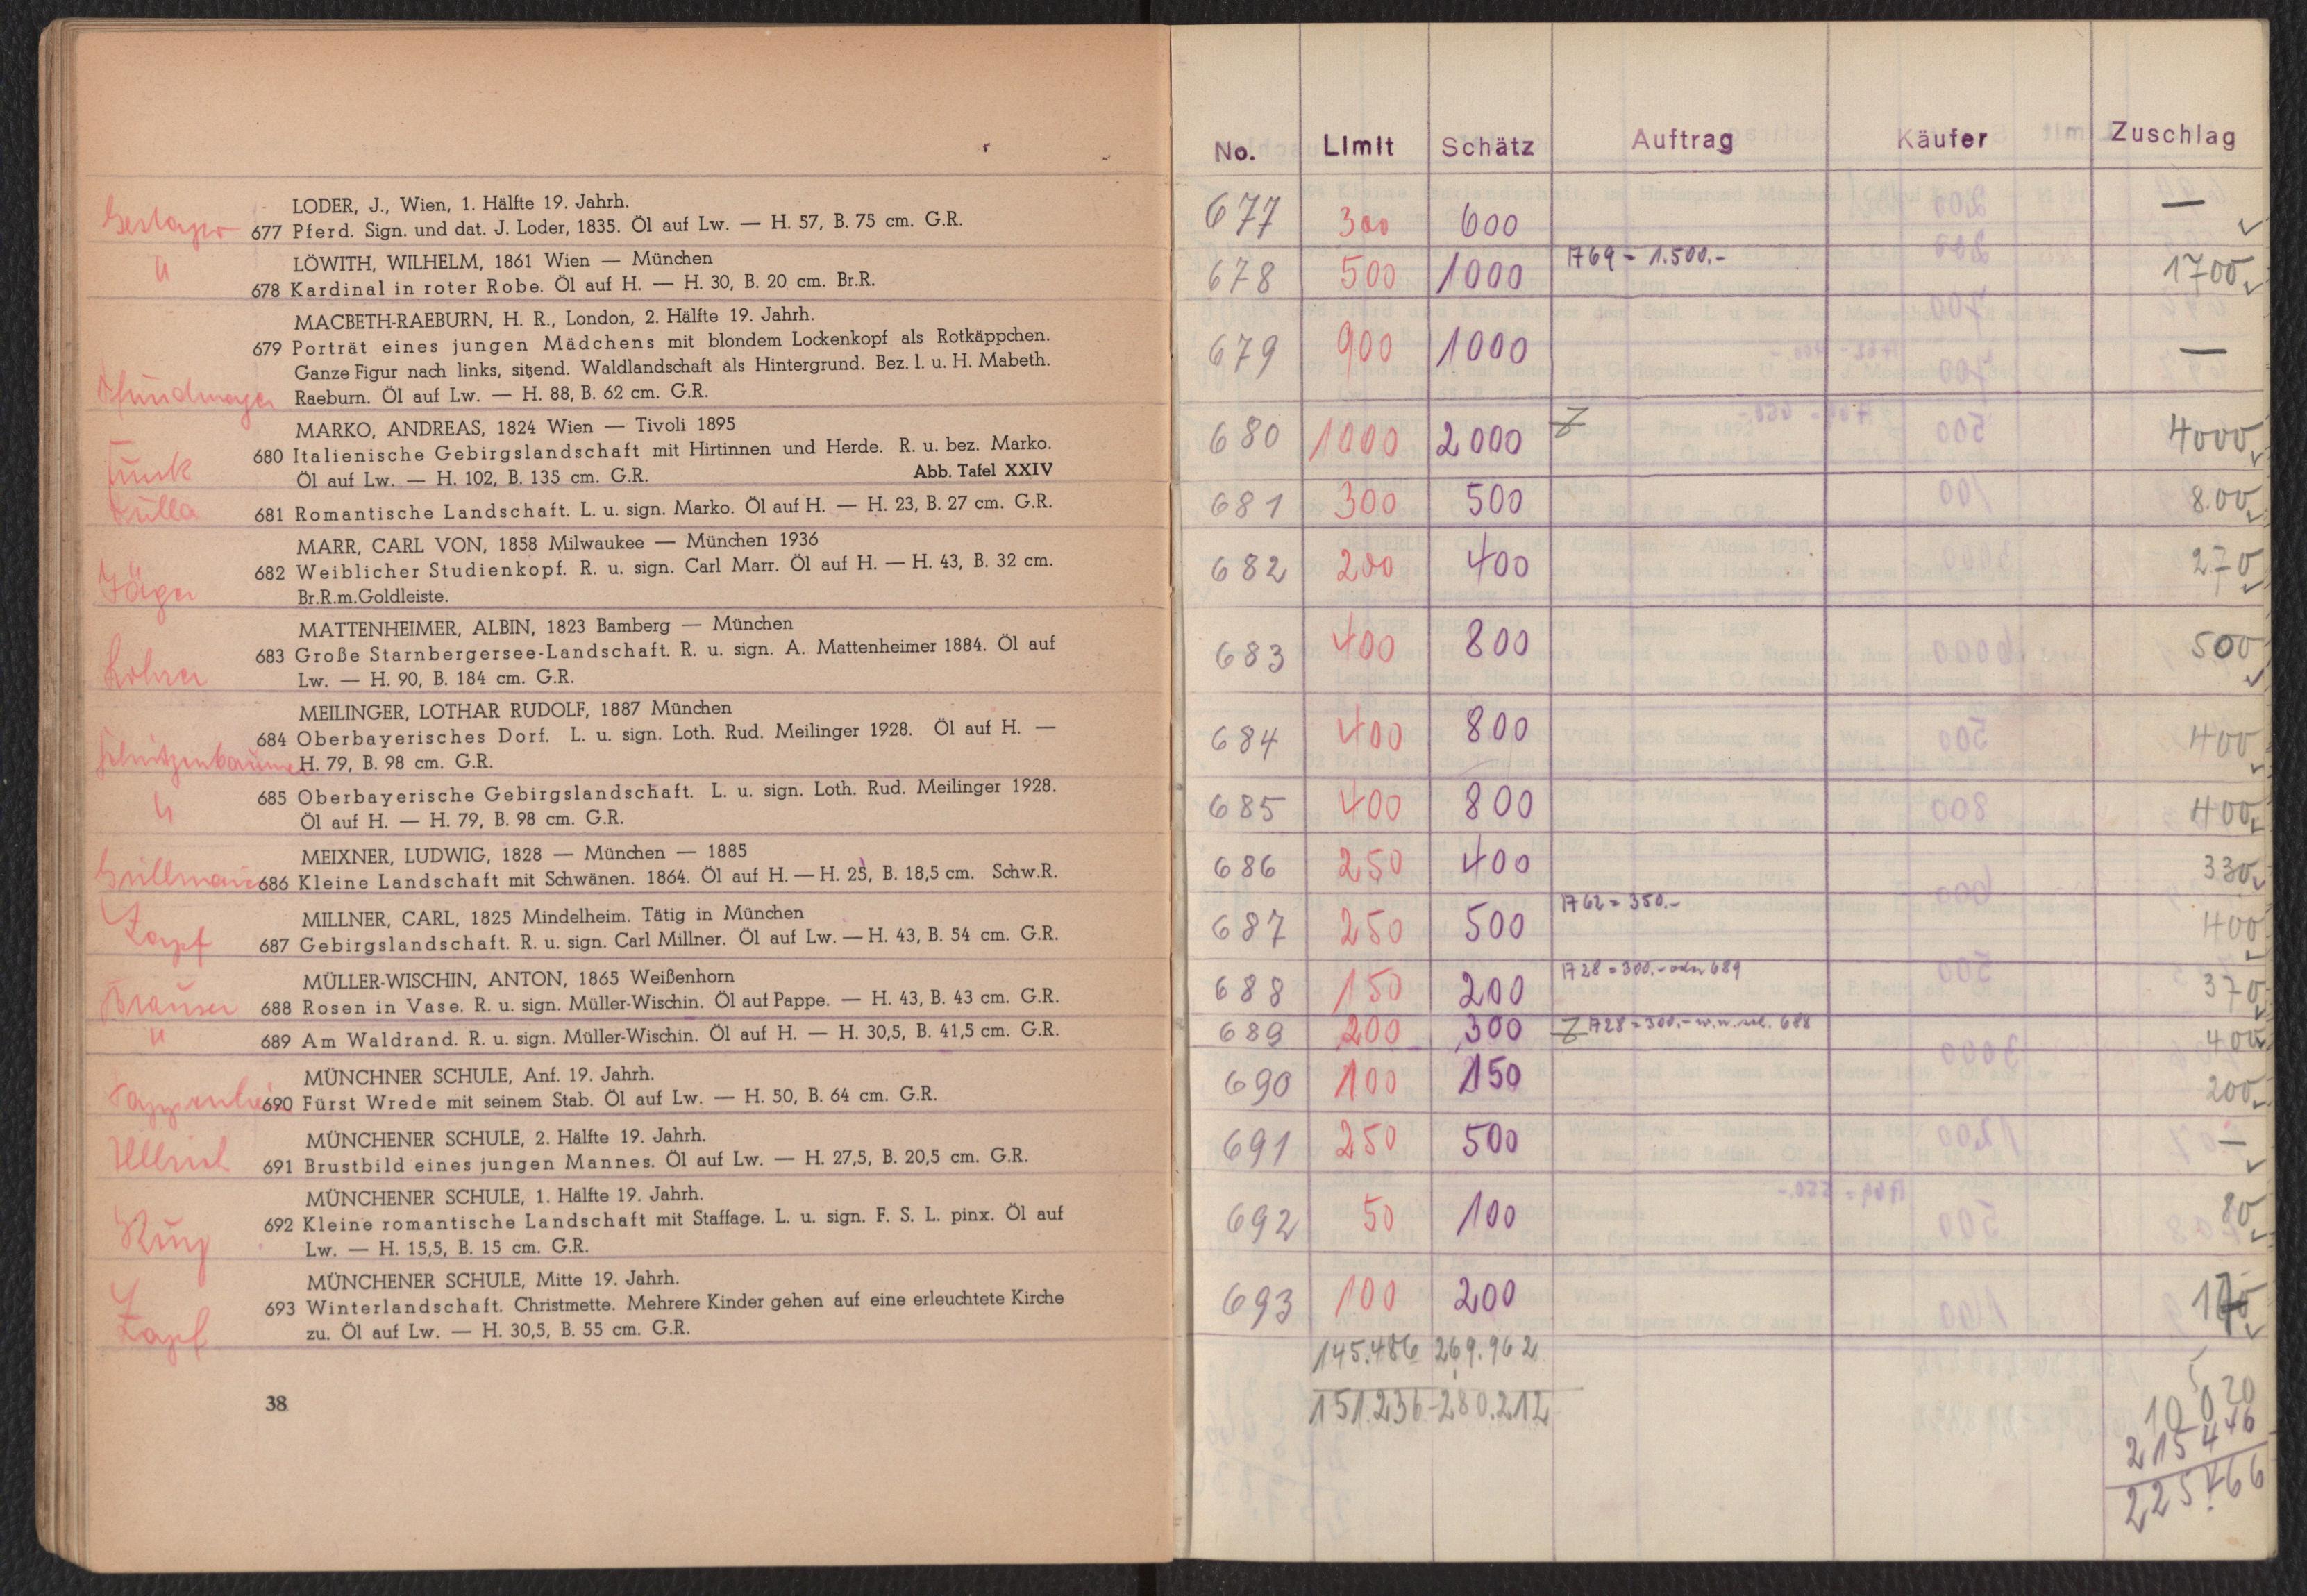 LODER, J., Wien, 1. Hälfte 19. Jahrh.
Gestapo 677 Pferd. Sign. und dat. J. Loder, 1835. Öl auf Lw. — H. 57, B. 75 cm. G.R.
LÖWITH, WILHELM, 1861 Wien — München
" 678 Kardinal in roter Robe. Öl auf H. — H. 30, B. 20 cm. Br.R.
MACBETH-RAEBURN, H. R., London, 2. Hälfte 19. Jahrh.
679 Porträt eines jungen Mädchens mit blondem Lockenkopf als Rotkäppchen.
Ganze Figur nach links, sitzend. Waldlandschaft als Hintergrund. Bez. l. u. H. Mabeth.
Raeburn. Öl auf Lw. — H. 88, B. 62 cm. G.R.
MARKO, ANDREAS, 1824 Wien — Tivoli 1895
680 Italienische Gebirgslandschaft mit Hirtinnen und Herde. R. u. bez. Marko.
Funk Öl auf Lw. — H. 102, B. 135 cm. G.R. Abb. Tafel XXIV
681 Romantische Landschaft. L. u. sign. Marko. Öl auf H. — H. 23, B. 27 cm. G.R.
MARR, CARL VON, 1858 Milwaukee — München 1936
682 Weiblicher Studienkopf. R. u. sign. Carl Marr. Öl auf H. — H. 43, B. 32 cm.
Jäger Br.R.m.Goldleiste.
MATTENHEIMER, ALBIN, 1823 Bamberg — München
683 Große Starnbergersee-Landschaft. R. u. sign. A. Mattenheimer 1884. Öl auf
Lohrer Lw. — H. 90, B. 184 cm. G.R.
MEILINGER, LOTHAR RUDOLF, 1887 München
684 Oberbayerisches Dorf. L. u. sign. Loth. Rud. Meilinger 1928. Öl auf H. —
Schnitzenbaumer H. 79, B. 98 cm. G.R.
685 Oberbayerische Gebirgslandschaft. L. u. sign. Loth. Rud. Meilinger 1928.
" Öl auf H. — H. 79, B. 98 cm. G.R.
MEIXNER, LUDWIG, 1828 — München — 1885
686 Kleine Landschaft mit Schwänen. 1864. Öl auf H. — H. 25, B. 18,5 cm. Schw.R.
MILLNER, CARL, 1825 Mindelheim. Tätig in München
Zapf 687 Gebirgslandschaft. R. u. sign. Carl Millner. Öl auf Lw. — H. 43, B. 54 cm. G.R.
MÜLLER-WISCHIN, ANTON, 1865 Weißenhorn
Brauser 688 Rosen in Vase. R. u. sign. Müller-Wischin. Öl auf Pappe. — H. 43, B. 43 cm. G.R.
" 689 Am Waldrand. R. u. sign. Müller-Wischin. Öl auf H. — H. 30,5, B. 41,5 cm. G.R.
MÜNCHNER SCHULE, Anf. 19. Jahrh.
690 Fürst Wrede mit seinem Stab. Öl auf Lw. — H. 50, B. 64 cm. G.R.
MÜNCHENER SCHULE, 2. Hälfte 19. Jahrh.
Ullrich 691 Brustbild eines jungen Mannes. Öl auf Lw. — H. 27,5, B. 20,5 cm. G.R.
MÜNCHENER SCHULE, 1. Hälfte 19. Jahrh.
692 Kleine romantische Landschaft mit Staffage. L. u. sign. F. S. L. pinx. Öl auf
Lw. — H. 15,5, B. 15 cm. G.R.
MÜNCHENER SCHULE, Mitte 19. Jahrh.
693 Winterlandschaft. Christmette. Mehrere Kinder gehen auf eine erleuchtete Kirche
Zapf zu. Öl auf Lw. — H. 30,5, B. 55 cm. G.R.
38
No. Limit Schätz Auftrag Käufer Zuschlag
677 300 600 —
678 500 1000 1769 = 1.500.- 1700
679 900 1000 —
680 1000 2000 Z 4000
681 300 500 800
682 200 400 270
683 400 800 500
684 400 800 400
685 400 800 400
686 250 400 330
687 250 500 1762 = 350.- 400
688 150 200 1728 = 300.- oder 689 370
689 200 300 Z 1728 = 300.- 688 400
690 100 150 200
691 250 500 —
692 50 100 80
693 100 200
145.486 269.962
151.236 - 280.212
10 020
215 446
225.466